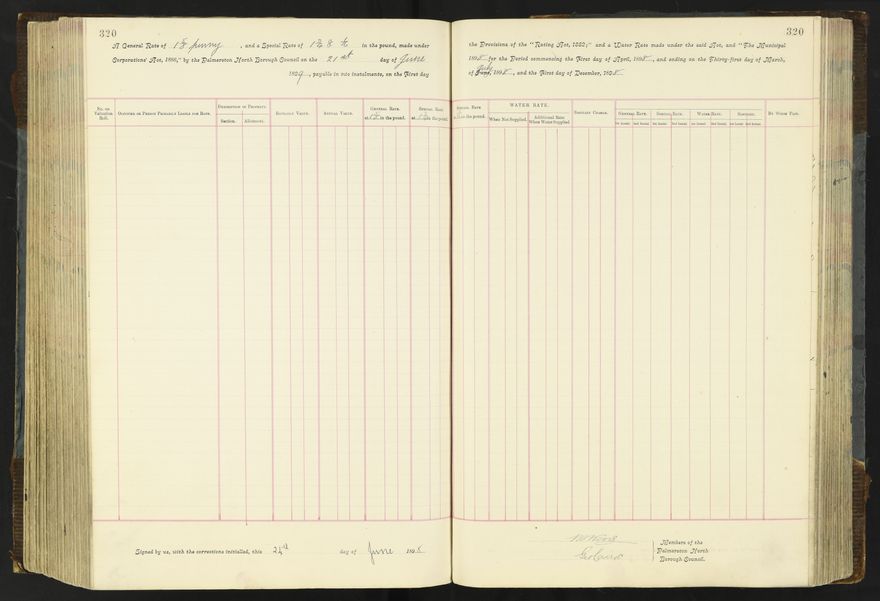 320
A General Rate of 1 penny, and a Special Rate of in the pound, made under
Corporations Act, 1886," by the Palmerston North Borough Council on the 21st day of June
189, payable in two instalments, on the First day
No. on Valuation Roll.
Occupier or Person Primarily Liable for Rate.
Description of Property.
Section. Allotment.
Rateable Value.
Annual Value.
General Rate
at in the pound.
Special Rate
at in the pound.
Signed by us, with the corrections initialled, this day of June 189
320
the Provisions of the "Rating Act, 1882;" and a Water Rate made under the said Act, and "The Municipal
1895 for the Period commencing the First day of April, 1895, and ending on the Thirty-first day of March,
of July, 1895, and the First day of December, 1895
Special Rate
in the pound.
WATER RATE.
When Not Supplied.
Additional Rate
When Water Supplied.
Sanitary Charge.
General Rate. Special Rate. Water Rate. Sanitary.
1st Instal. 2nd Instal. 1st Instal. 2nd Instal. 1st Instal. 2nd Instal. 1st Instal. 2nd Instal.
By Whom Paid.
Members of the
Palmerston North
Borough Council.